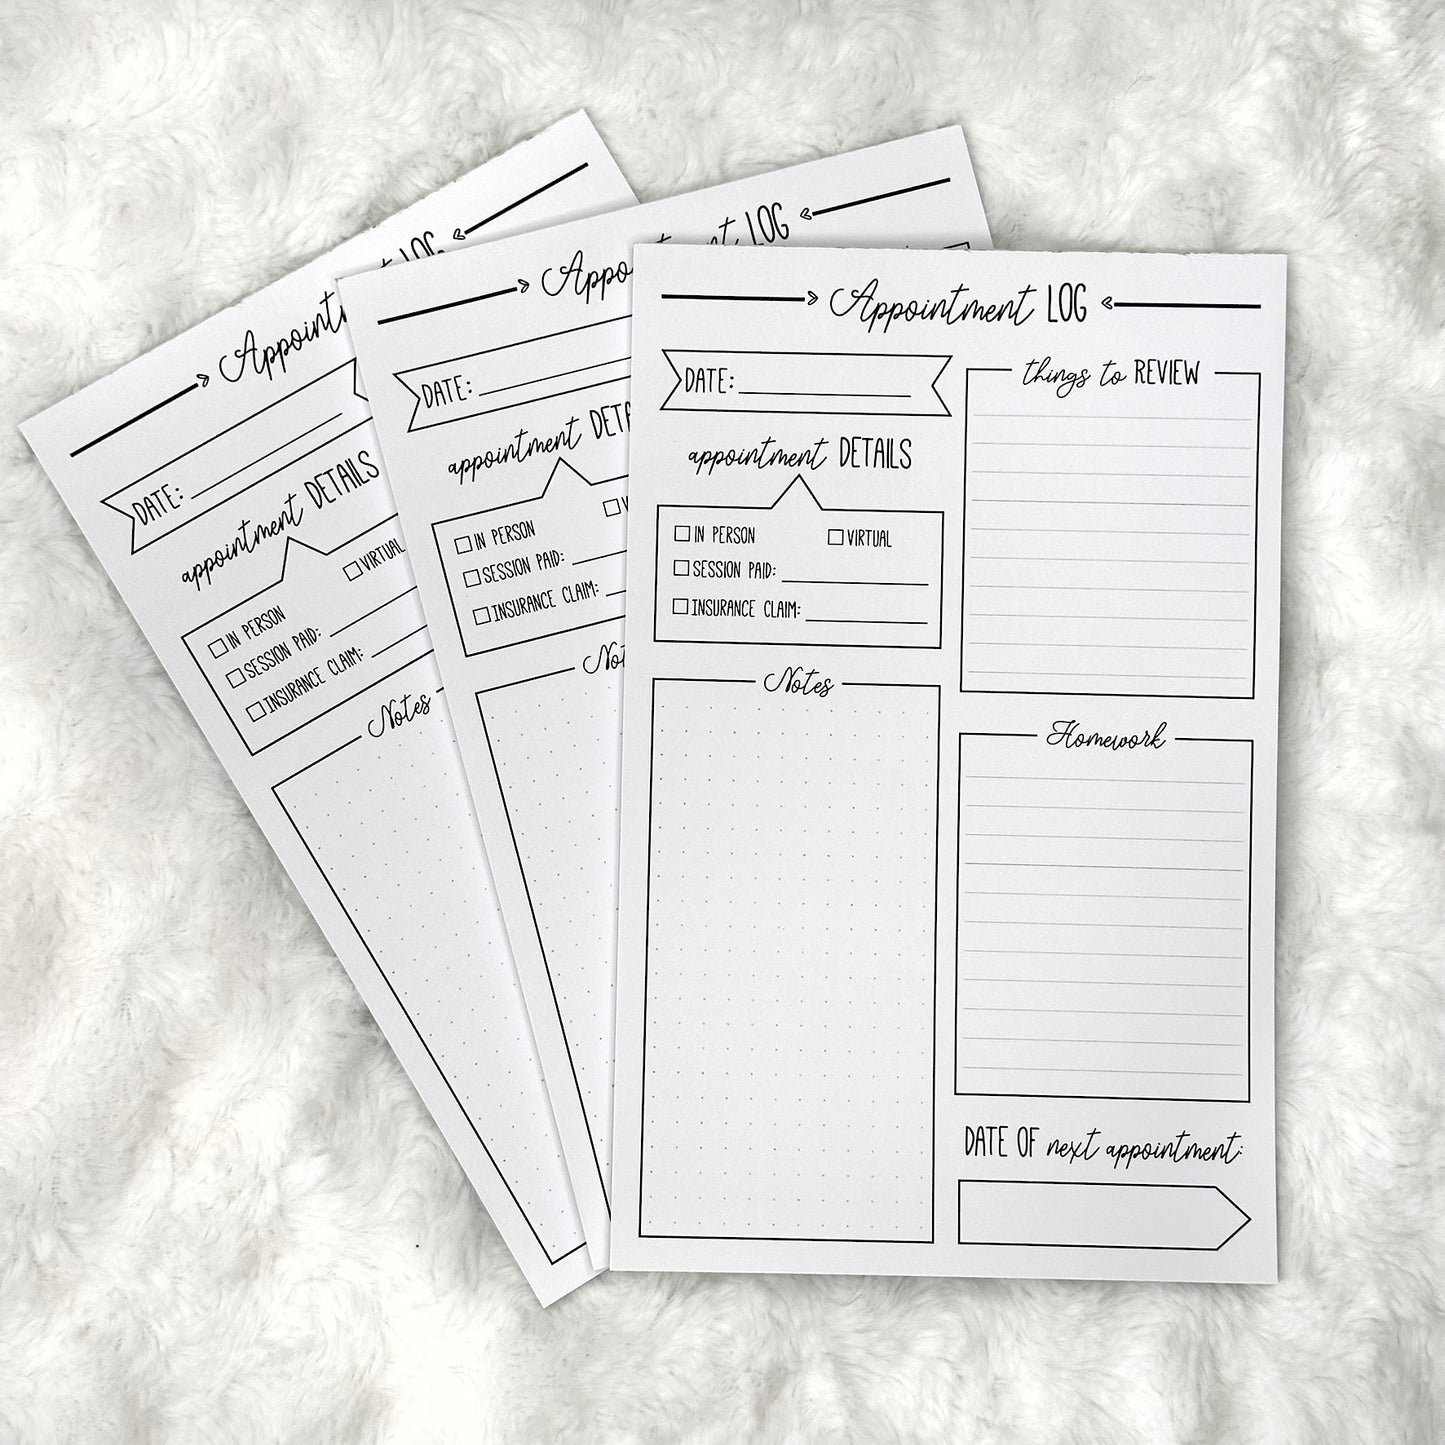 Appointment LOG
DATE:
appointment DETAILS
IN PERSON VIRTUAL
SESSION PAID:
INSURANCE CLAIM:
Notes
things to REVIEW
Homework
DATE OF next appointment:
LOG
DATE:
appointment
IN PERSON
SESSION PAID:
INSURANCE CLAIM:
LOG
DATE:
appointment DETAILS
IN PERSON VIRTUAL
SESSION PAID:
INSURANCE CLAIM:
Notes